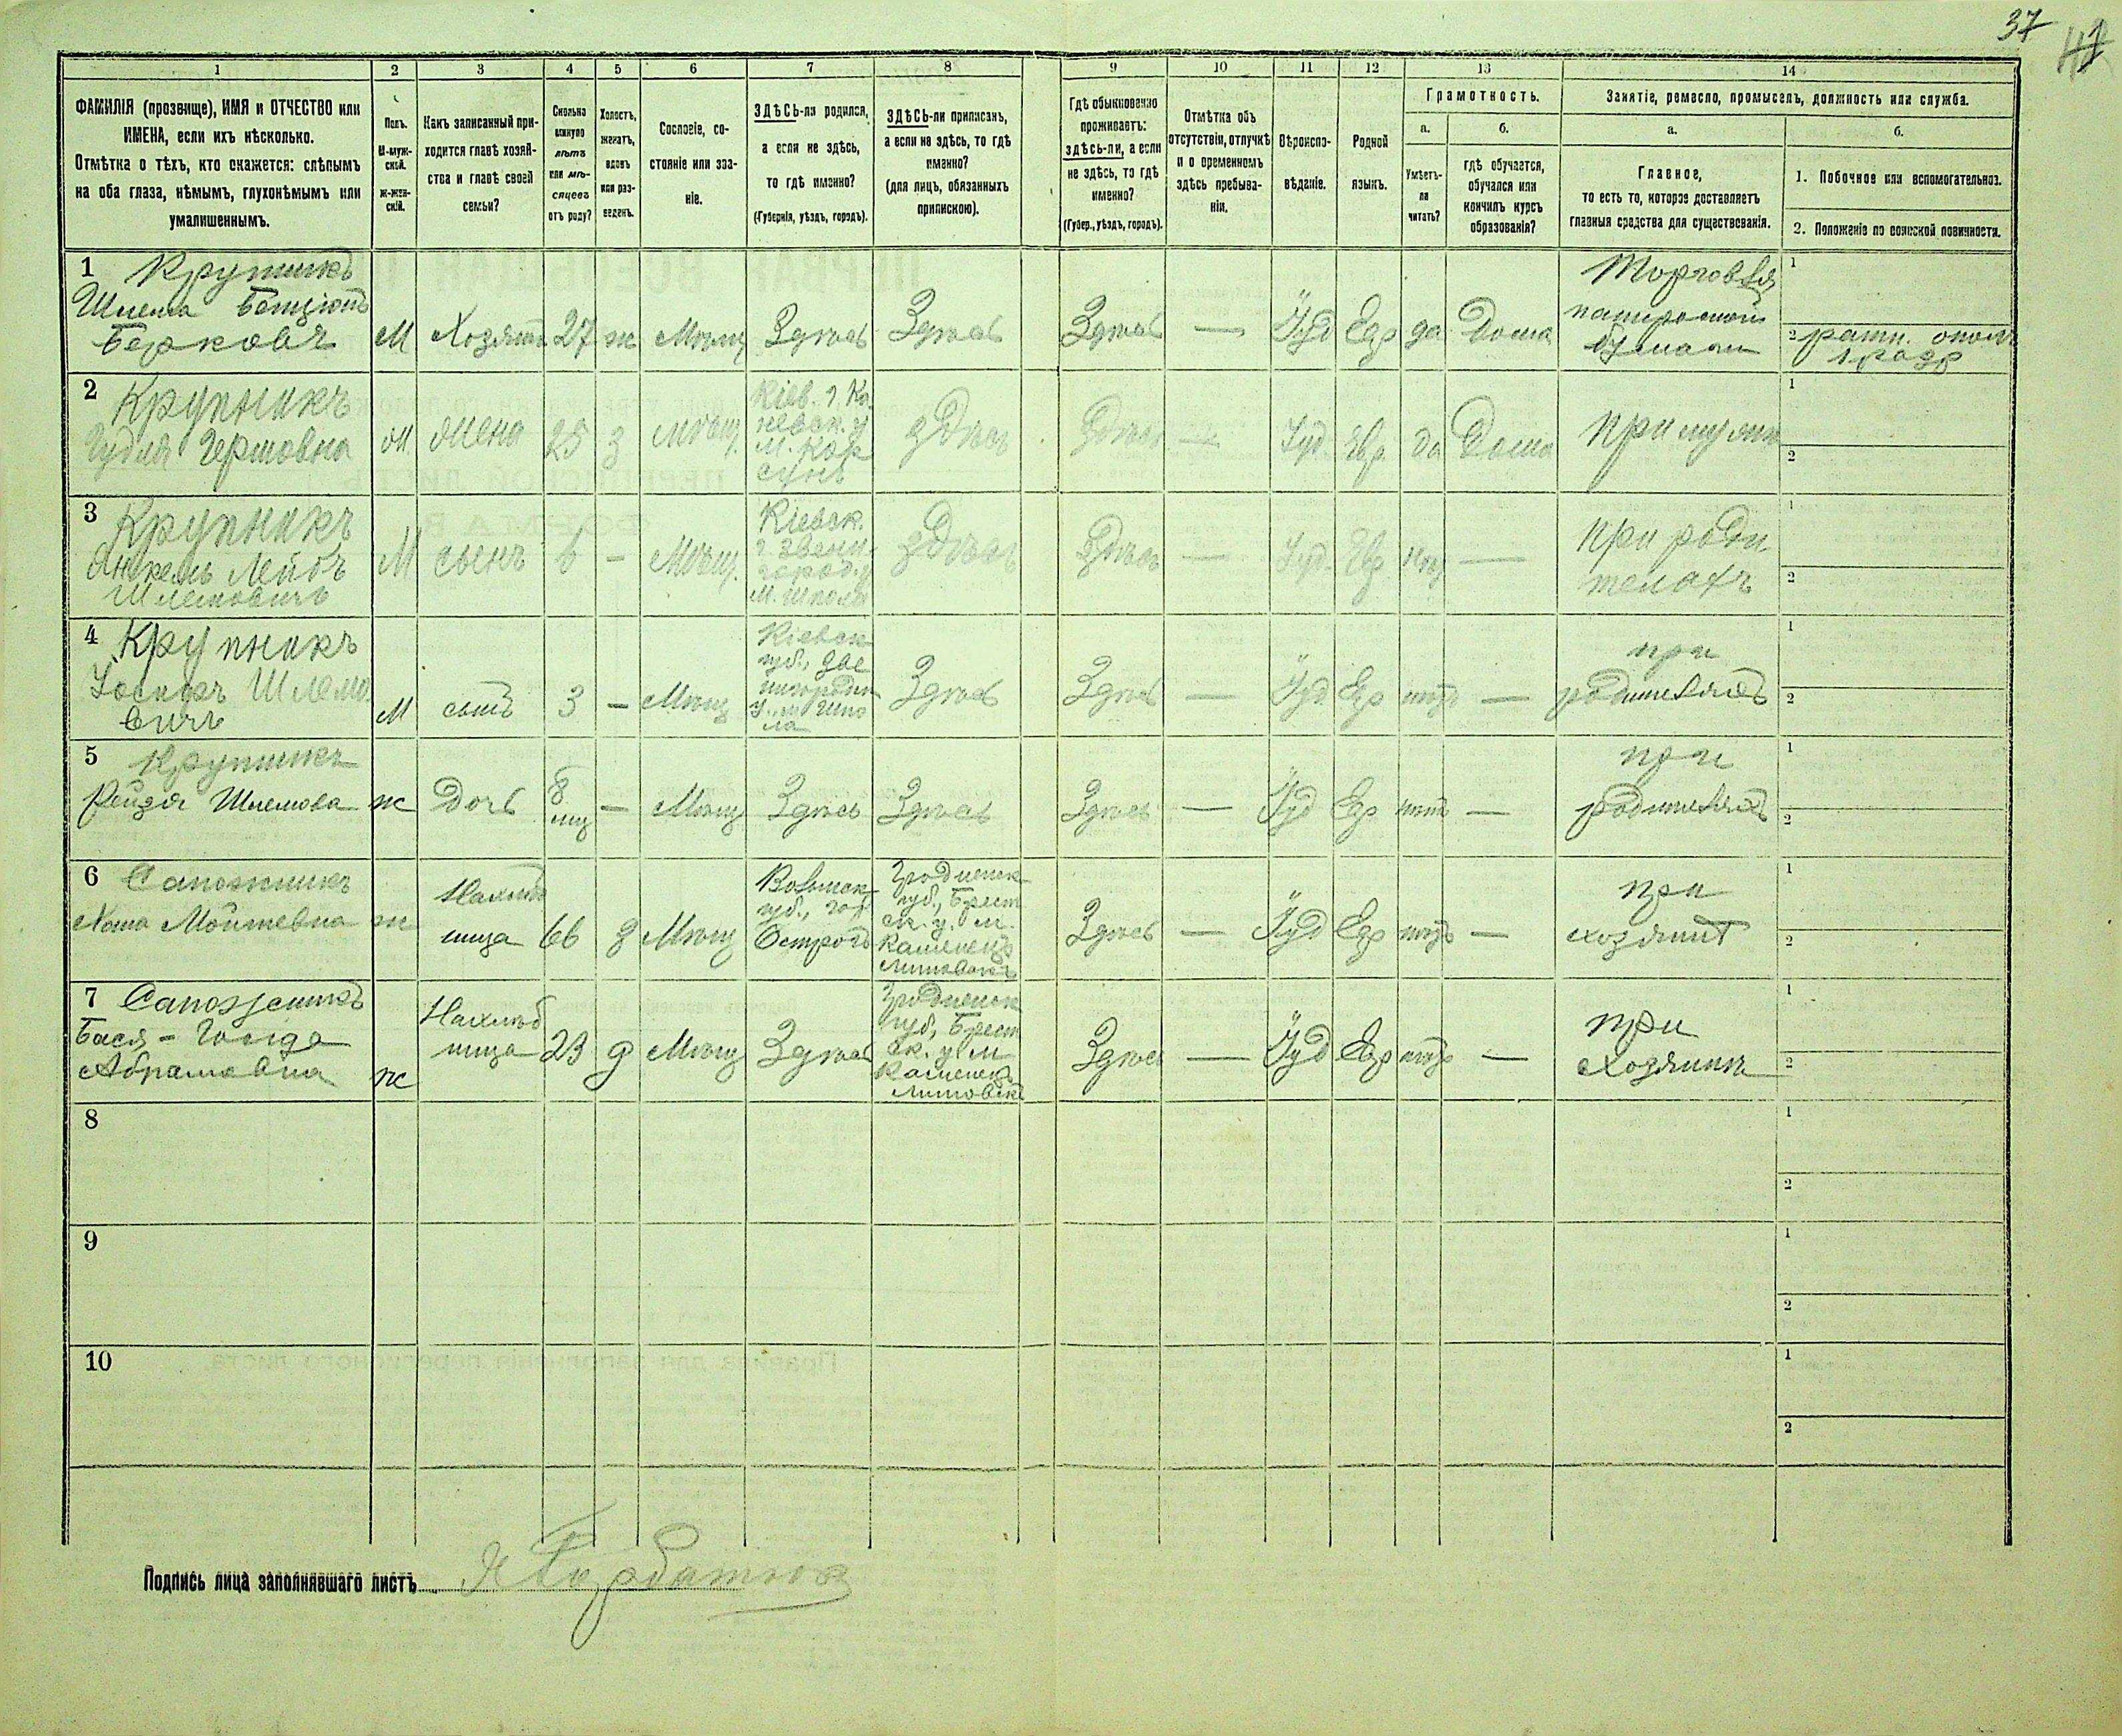 37
41
1 2 3 4 5 6 7 8 9 10 11 12 13 14
ФАМИЛІЯ (прозвище), ИМЯ и ОТЧЕСТВО или
ИМЕНА, если ихъ нѣсколько.
Отмѣтка о тѣхъ, кто окажется: слѣпымъ
на оба глаза, нѣмымъ, глухонѣмымъ или
умалишеннымъ.
Полъ.
М-муж-
ской.
Ж-жен-
скій.
Какъ записанный при-
ходится главѣ хозяй-
ства и главѣ своей
семьи?
Сколько
минуло
лѣтъ
или мѣ-
сяцевъ
отъ роду?
Холостъ,
женатъ,
вдовъ
или раз-
веденъ.
Сословіе, со-
стояніе или зва-
ніе.
ЗДѢСЬ-ли родился,
а если не здѣсь,
то гдѣ именно?
(Губернія, уѣздъ, городъ).
ЗДѢСЬ-ли приписанъ,
а если не здѣсь, то гдѣ
именно?
(для лицъ, обязанныхъ
припискою).
Гдѣ обыкновенно
проживаетъ:
здѣсь-ли, а если
не здѣсь, то гдѣ
именно?
(Губер., уѣздъ, городъ).
Отмѣтка объ
отсутствіи, отлучкѣ
и о временномъ
здѣсь пребыва-
ніи.
Вѣроиспо-
вѣданіе.
Родной
языкъ.
Грамотность.
а.
Умѣетъ-
ли
читать?
б.
гдѣ обучается,
обучался или
кончилъ курсъ
образованія?
Занятіе, ремесло, промыселъ, должность или служба.
а.
Главное,
то есть то, которое доставляетъ
главныя средства для существованія.
б.
1. Побочное или вспомогательное.
2. Положеніе по воинской повинности.
1 Крупникъ
Шлема Бенціонъ
Берковъ
М Хозяинъ 27 ж Мѣщ Здѣсь Здѣсь Здѣсь — Іуд Евр да Дома
Торговля
папиросной
бумаги
1
2 ратн. ополч
1 разр
2 Крупникъ
Гудля Гершовна
М. жена 25 з Мѣщ.
Кіев. г. Ка
невск. у
М. Кор
сунь
здѣсь здѣсь — Іуд. Евр. да Дома
при мужѣ
1
2
3 Крупникъ
Янкель Лейбъ
Шлемовичъ
М сынъ 6 — Мѣщ.
Кіевск.
г. Звени
город. у
М. Шпола
здѣсь здѣсь — Іуд. Евр нѣтъ —
при роди
теляхъ
1
2
4 Крупникъ
Іосифъ Шлемо
вичъ
М сынъ 3 — Мѣщ
Кіевск
губ., Зве
нигородск
у., м Шпо
ла
Здѣсь Здѣсь — Іуд Евр нѣтъ —
при
родителяхъ
1
2
5 Крупникъ
Рейзя Шлемова
ж Дочь 8
мц
— Мѣщ Здѣсь Здѣсь Здѣсь — Іуд Евр нѣтъ —
при
родителяхъ
1
2
6 Сапожникъ
Мошевна
ж Нахлѣб
ница
66 в Мѣщ
Волынск
губ., гор
Острогъ
Гродненск
губ., Брест
ск. у. м.
Каменецъ
Литовскъ
Здѣсь — Іуд Евр нѣтъ —
при
хозяинѣ
1
2
7 Сапожникъ
Бася - Голда
Абрамовна
ж Нахлѣб
ница
23 д Мѣщ Здѣсь
Гродненск
губ., Брест
ск. у. м
Каменецъ
Литовскъ
Здѣсь — Іуд Евр нѣтъ —
при
Хозяинѣ
1
2
8
1
2
9
1
2
10
1
2
Подпись лица заполнявшаго листъ